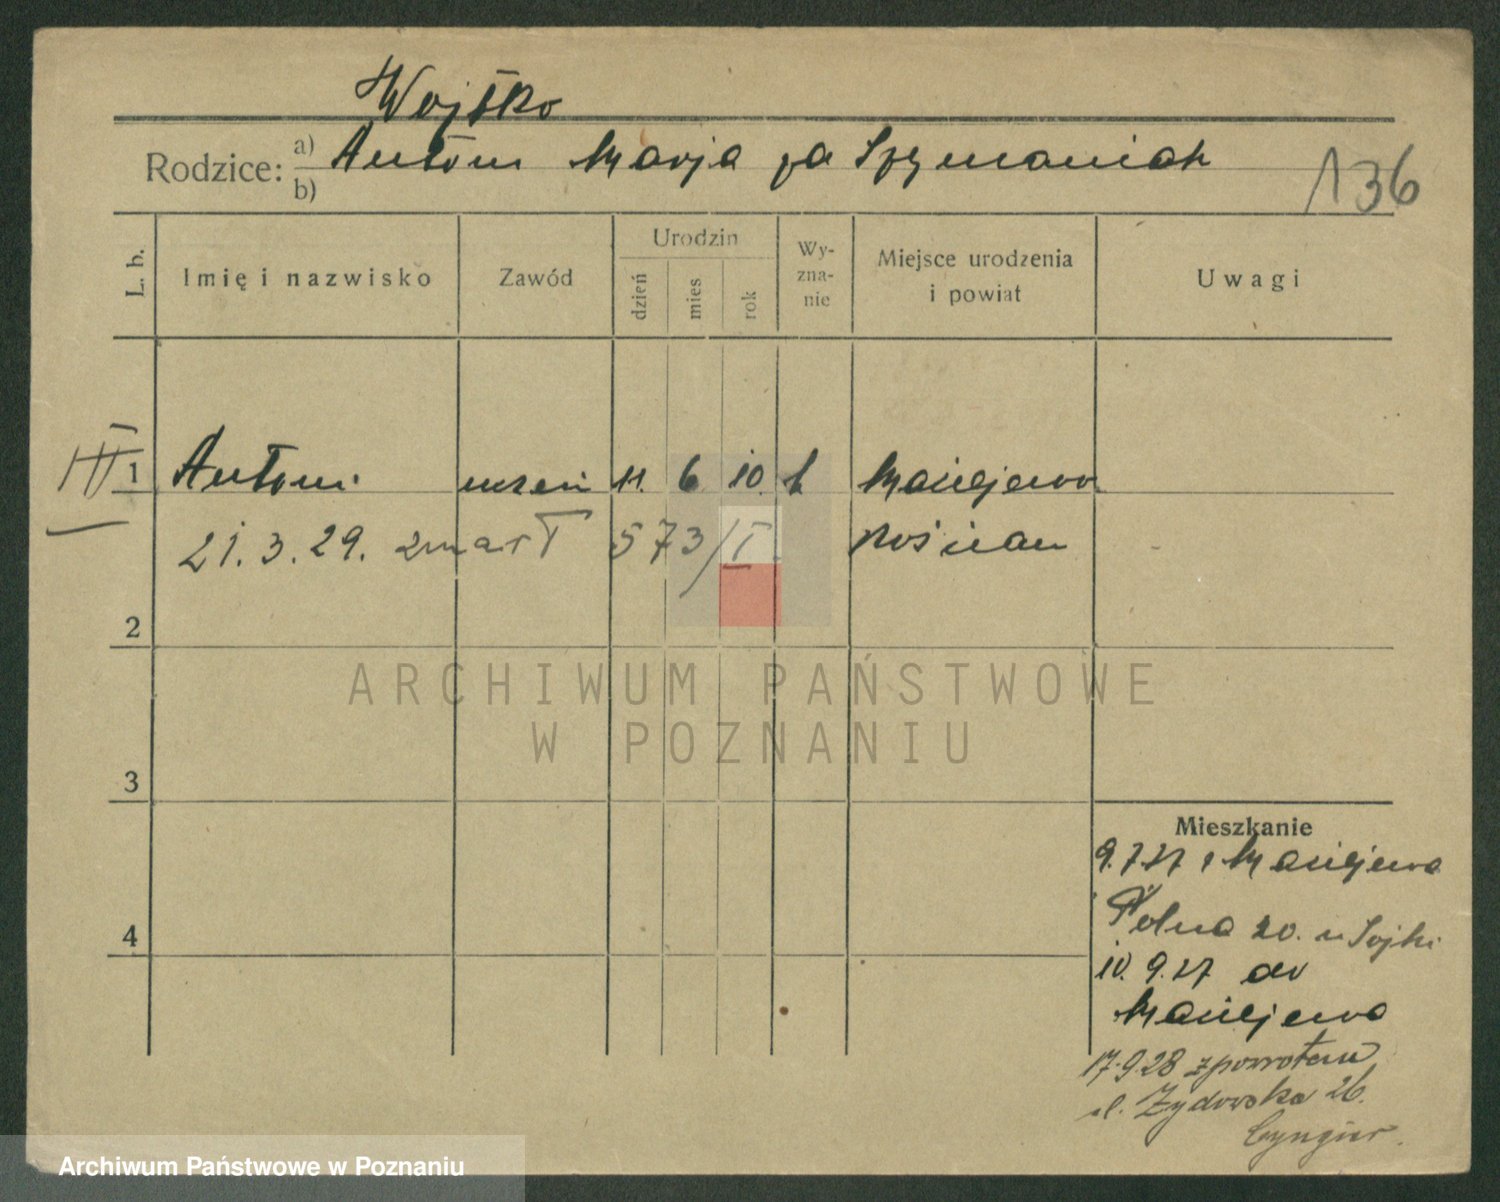 Wojtko
Rodzice: a) Antoni Marja za Szymaniak
b)
136
L. b.
Imię i nazwisko
Zawód
Urodzin
dzień
mies
rok
Wy-
zna-
nie
Miejsce urodzenia
i powiat
Uwagi
III
1 Antoni uczeń 11. 6 10. k Maciejewo
21. 3. 29. zmarł 573/I
2
3
4
Mieszkanie
9.7.27 z Maciejewa
Polna 20. u Sojki
10. 9.27 do
Maciejewa
17.9.28 z powrotem
ul. Żydowska 26.
ARCHIWUM PAŃSTWOWE
W POZNANIU
Archiwum Państwowe w Poznaniu